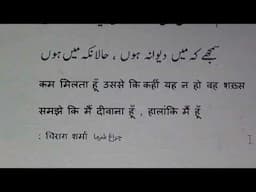 سمجھے کہ میں دیوانہ ہوں ، حالانکہ میں ہوں
कम मिलता हूँ उससे कि कहीं यह न हो वह शख़्स
समझे कि मैं दीवाना हूँ , हालांकि मैं हूँ
: चिराग़ शर्मा چراغ شرما